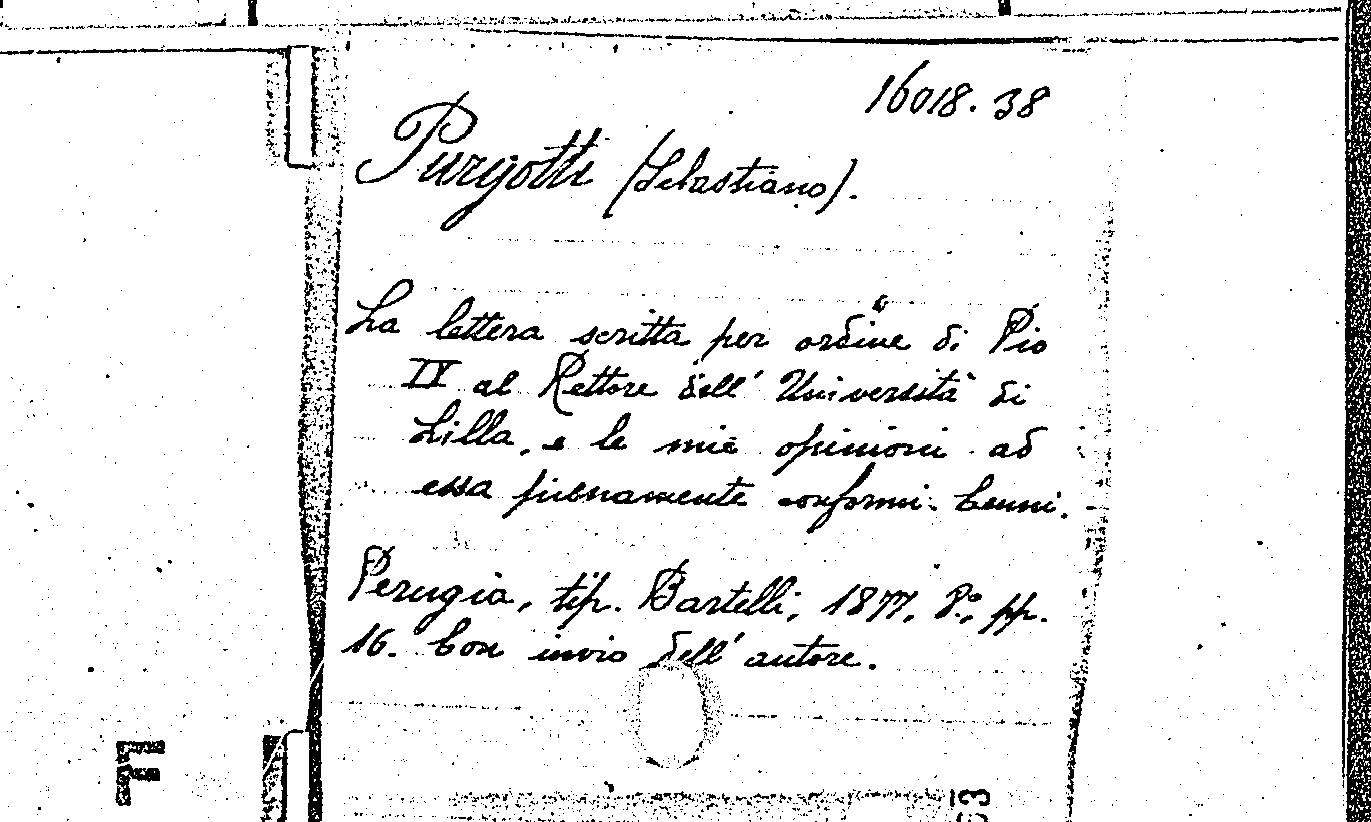 16018. 38
Purgotti (Sebastiano).
La lettera scritta per ordine di Pio
IX al Rettore dell' Università di
Lilla, e le mie opinioni ad
essa pienamente conformi. Cenni.
Perugia, tip. Bartelli, 1877, 8.º, pp.
16. Con invio dell' autore.
F
53